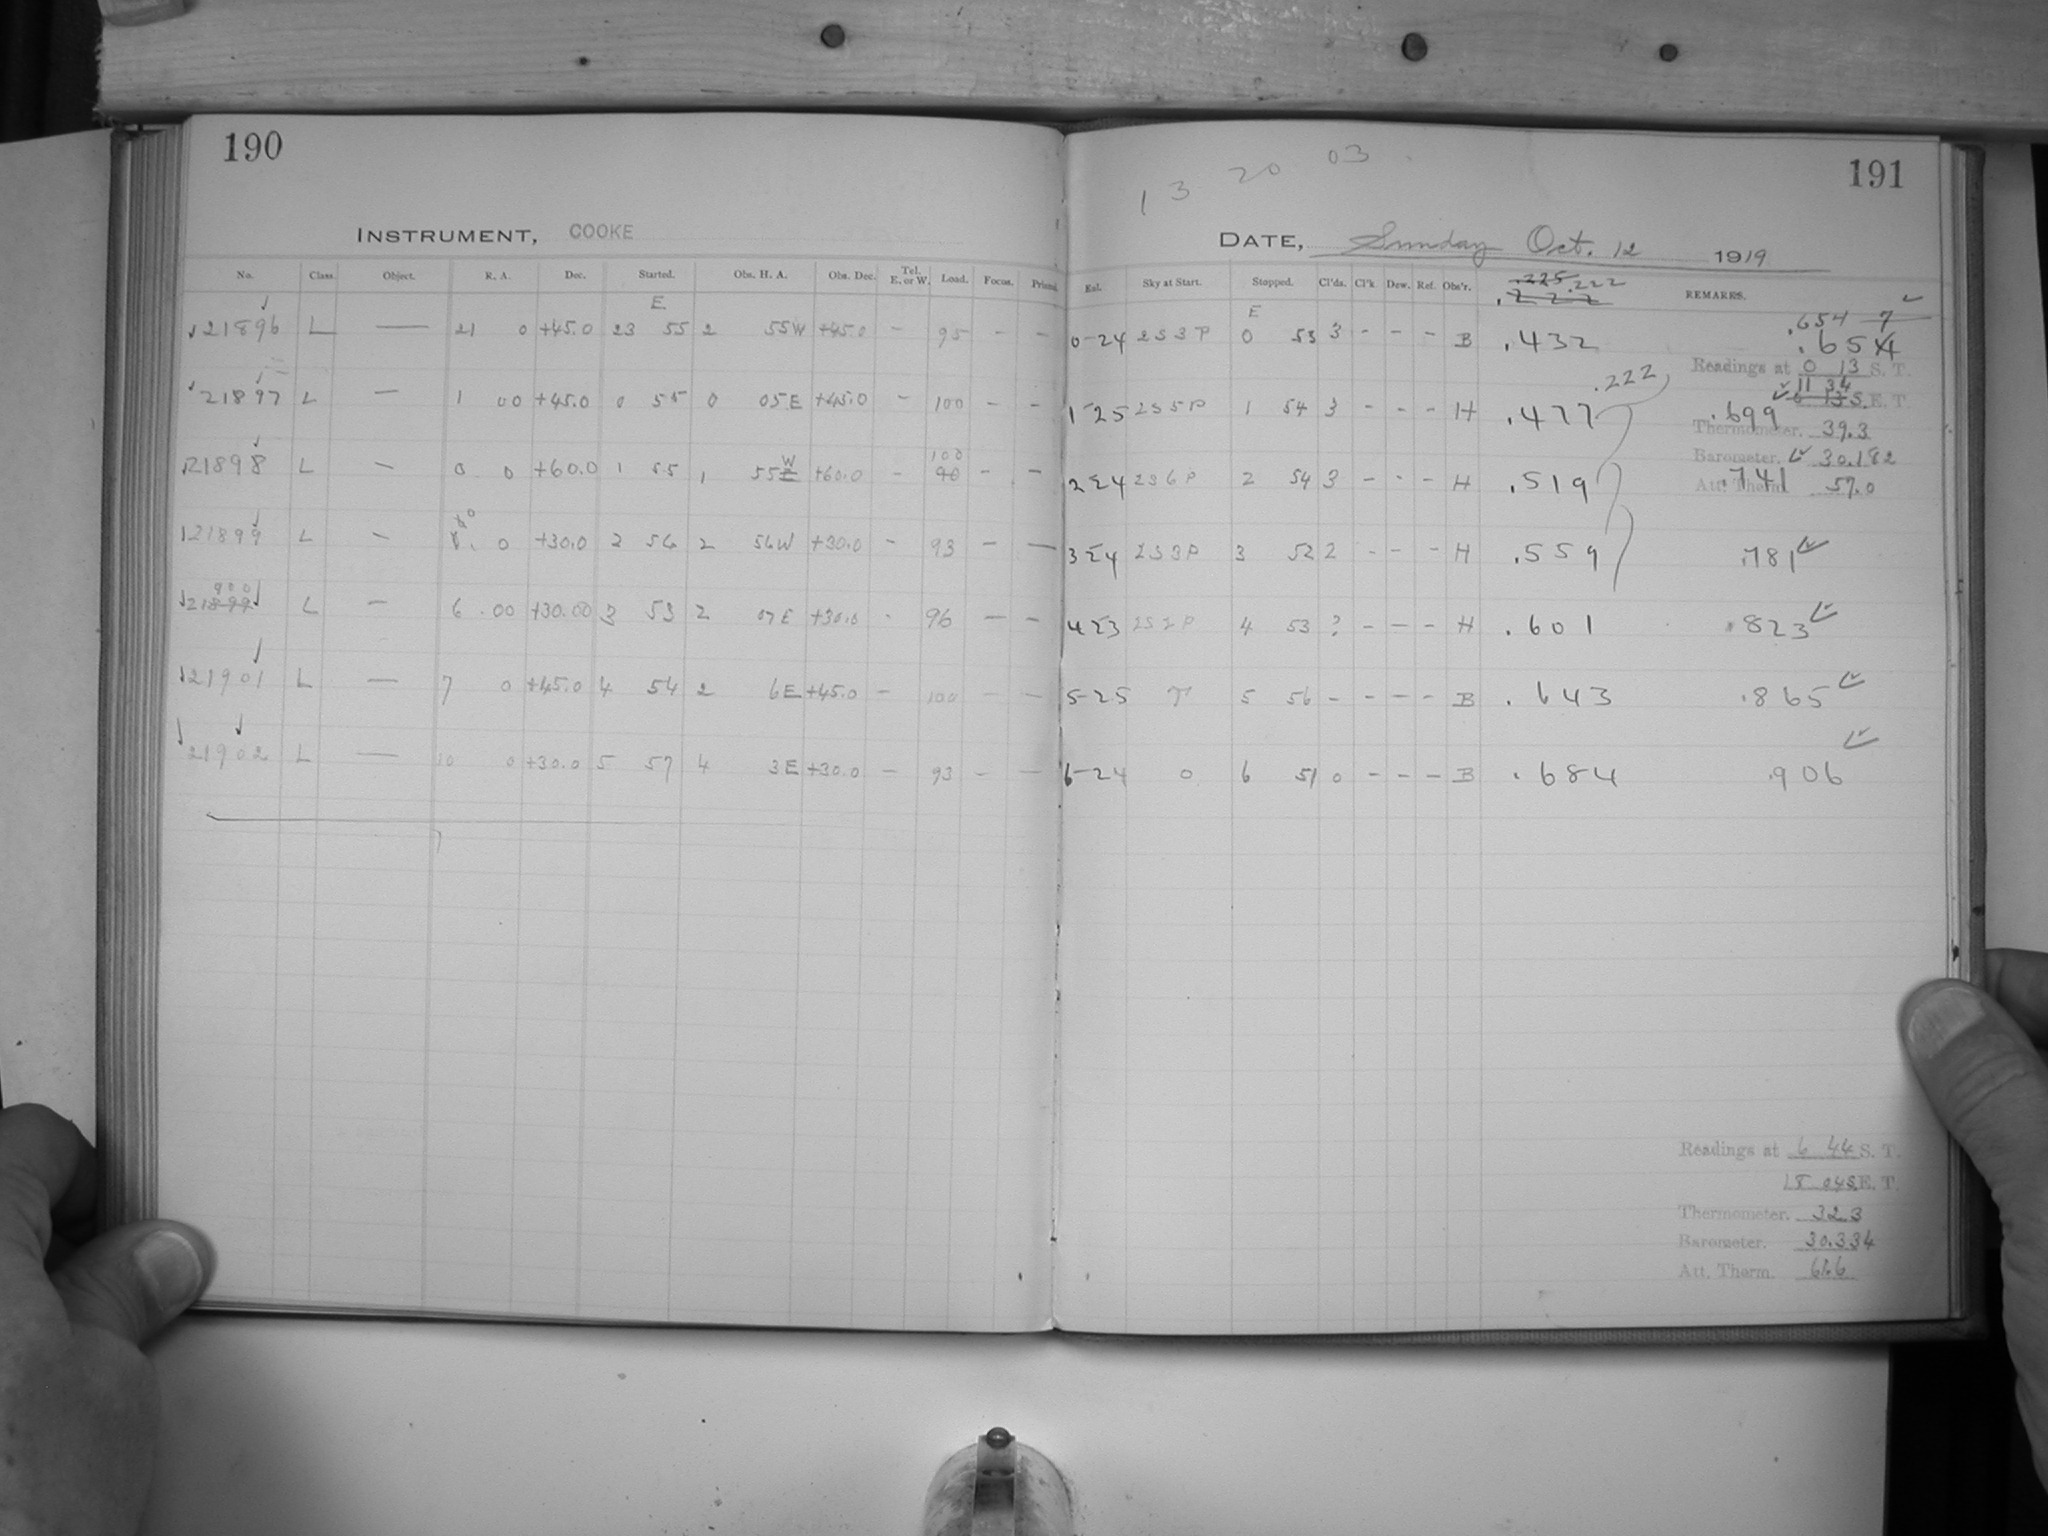 190
INSTRUMENT, COOKE
No. Class. Object. R. A. Dec. Started. Obs. H. A. Obs. Dec. Tel. E. or W. Load. Focus. Prisms.
E
21896 L — 21 0 +45.0 23 55 2 55W +45.0 – 95 – –
21897 L — 1 00 +45.0 0 55 0 05E +45.0 – 100 – –
W 100
21898 L — 0 0 +60.0 1 55 1 55E +60.0 – 90 – –
21899 L — 0 +30.0 2 56 2 56W +30.0 – 93 – –
900
21899 L — 6 00 +30.00 3 53 2 07E +30.0 - 96 – –
21901 L — 7 0 +45.0 4 54 2 6E +45.0 – 100 – –
21902 L — 10 0 +30.0 5 57 4 3E +30.0 – 93 – –
13 20 03
191
DATE, Sunday Oct. 12 1919
Exl. Sky at Start. Stopped. Cl'ds. Cl'k. Dew. Ref. Obs'r. REMARKS.
.225 .222
.222
E
.654 7
0-24 2S3P 0 53 3 - - - B .432 .654
Readings at 0 13 S. T.
.222
11 34
1-25 2S5P 1 54 3 - - - H .477 .699
E. T.
Thermometer. 39.3
Barometer. 30.182
2-24 2S6P 2 54 3 - - - H .519 .741
Att. Therm 57.0
3-24 2S3P 3 52 2 - - - H .559 .781
4-23 2S2P 4 53 ? - - - H .601 .823
5-25 5 56 - - - - B .643 .865
6-24 0 6 51 0 - - - B .684 .906
Readings at 6 44 S. T.
18 04 S.E. T.
Thermometer. 32.3
Barometer. 30.334
Att. Therm. 61.6